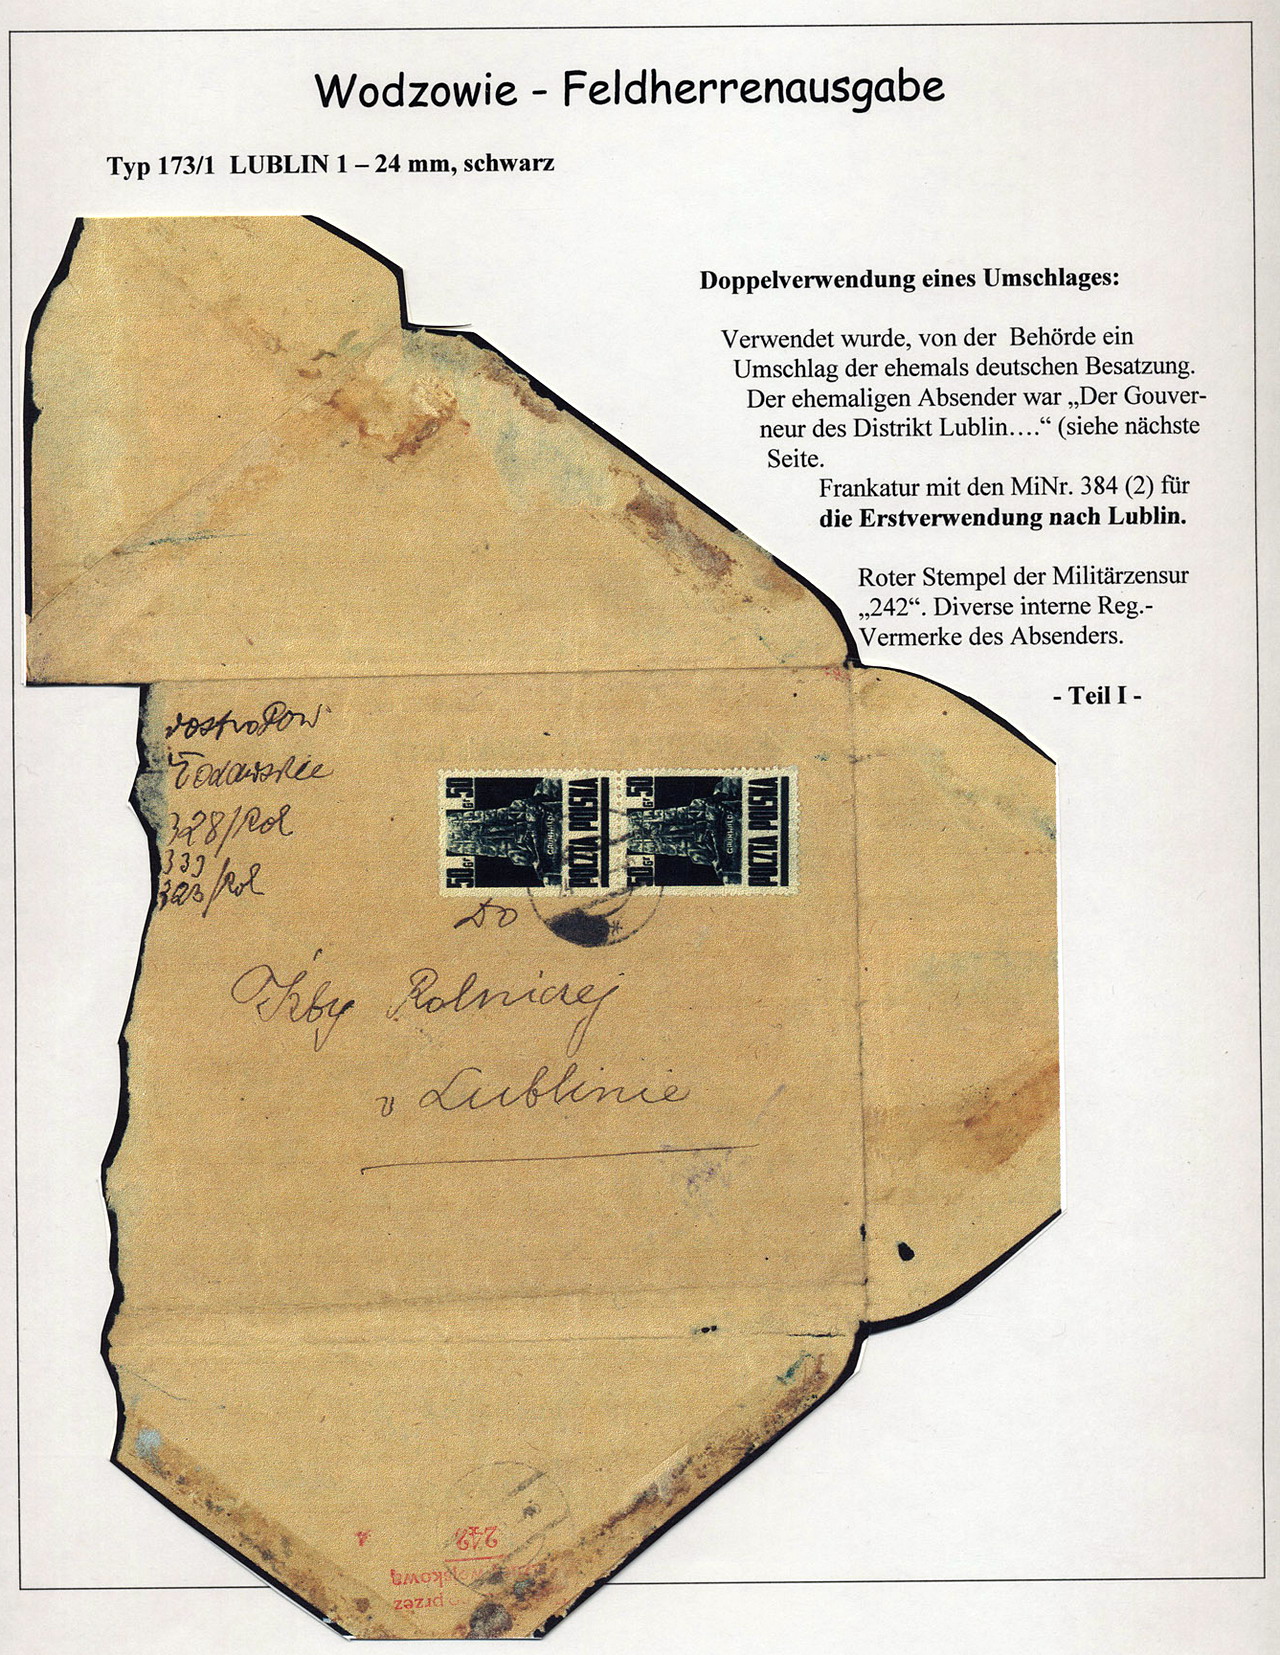 Wodzowie - Feldherrenausgabe
Typ 173/1 LUBLIN 1 – 24 mm, schwarz
Doppelverwendung eines Umschlages:
Verwendet wurde, von der Behörde ein
Umschlag der ehemals deutschen Besatzung.
Der ehemaligen Absender war „Der Gouver-
neur des Distrikt Lublin….“ (siehe nächste
Seite.
Frankatur mit den MiNr. 384 (2) für
die Erstverwendung nach Lublin.
Roter Stempel der Militärzensur
„242“. Diverse interne Reg.-
Vermerke des Absenders.
- Teil I -
328/Rol
333
323/Rol
50 gr 50 gr GRUNWALD POCZTA POLSKA
50 gr 50 gr GRUNWALD POCZTA POLSKA
Do
Izby Rolniczej
w Lublinie
przez
242